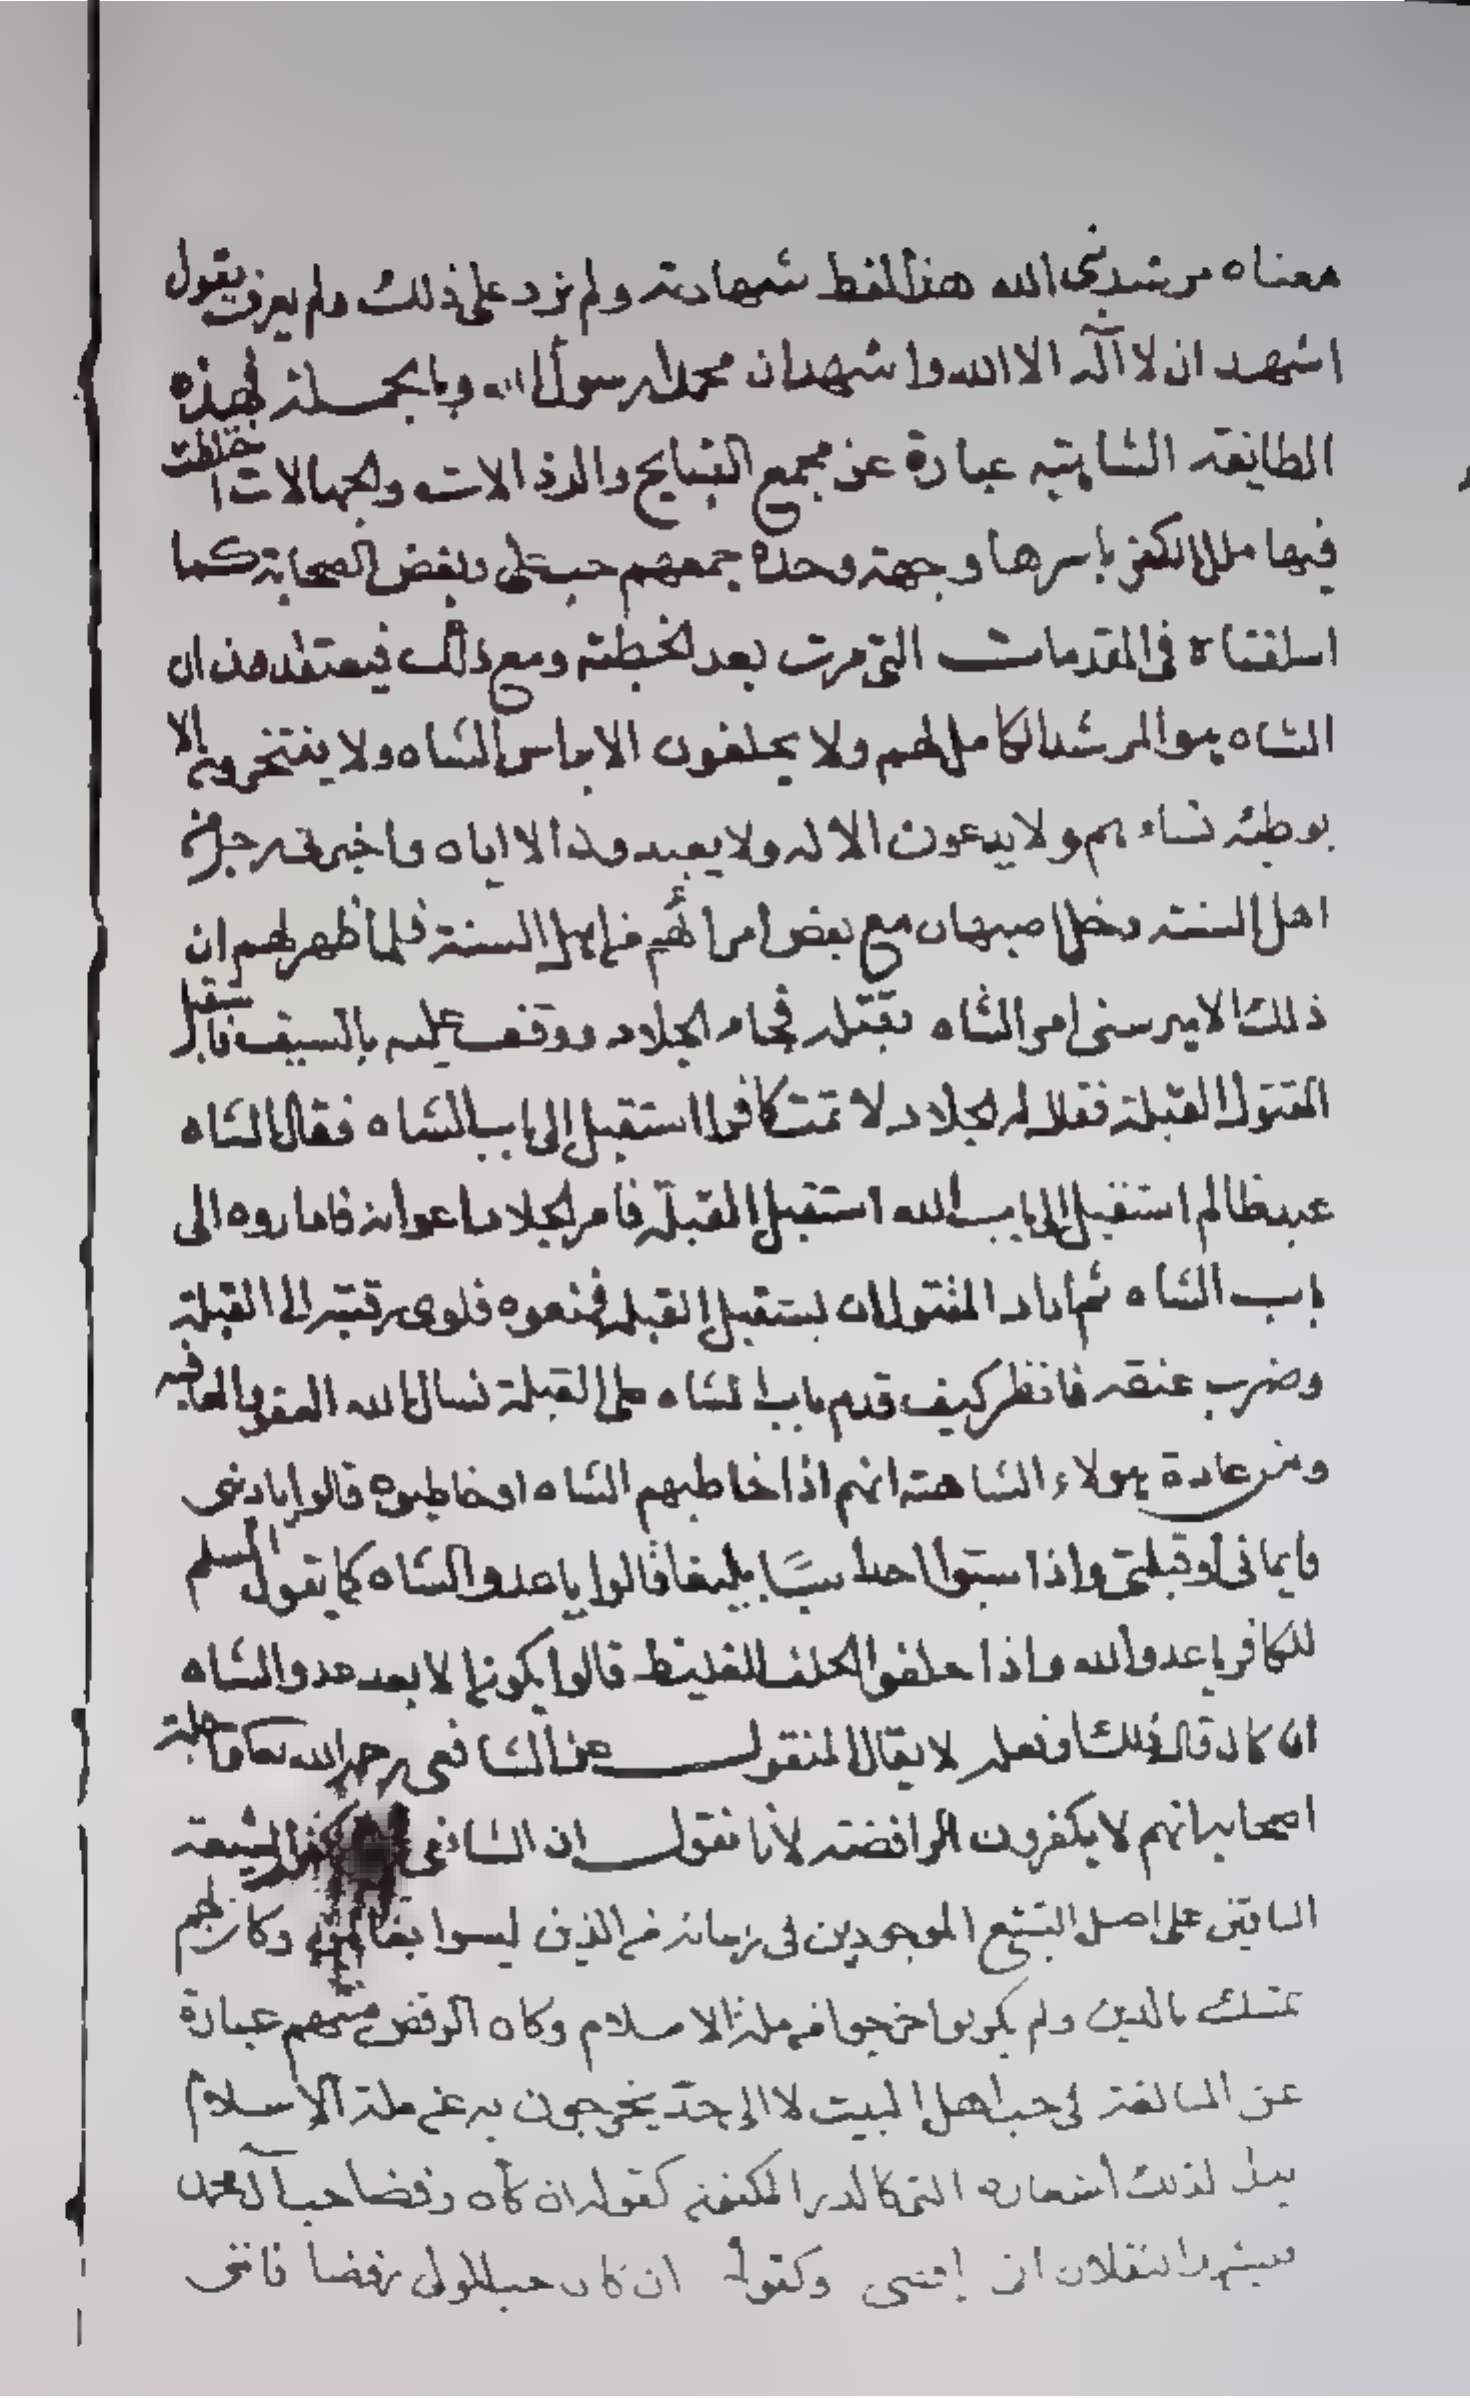 معناه مرشدني الله هذا لفظ شهادته ولم نزد على ذلك ولم يعرف يقول
اشهد ان لا آله الا الله واشهد ان محمدا رسول الله وبالجملة فهذه
الطايفة الشاهية عبارة عن مجمع القبايح والرذالات والجهالات اختلطت
فيها ملل الكفر باسرها وجهة وحدة جمعهم حب علي وبغض الصحابة كما
اسلفناه في المقدمات التي مرت بعد الخطبة ومع ذلك فيعتقدون ان
الشاه هو المرشد الكامل لهم ولا يحلفون الا براس الشاه ولا يفتخرون الا
بوطئه نساءهم ولا يدعون الا له ولا يعبدون الا اياه واخبرني رجل من
اهل السنة دخل اصبهان مع بعض امرائهم من اهل السنة فلما ظهر لهم ان
ذلك الامير سنى امر الشاه بقتله فجاء الجلاد ووقف عليه بالسيف فاستقبل
المقتول القبلة فقال له الجلاد لا تمت كافرا استقبل الى باب الشاه فقال الشاه
عبد ظالم استقبل الى باب الله استقبل القبلة فامر الجلاد اعوانه فاداروه الى
باب الشاه ثم اراد المقتول ان يستقبل القبلة فمنعوه فلوى رقبته الى القبلة
وضرب عنقه فانظر كيف قدم باب الشاه على القبلة نسال الله العفو والعافيه
ومن عادة هولاء الشاهية انهم اذا خاطبهم الشاه او خاطبوه قالوا يا ديني
وايماني وقبلتي واذا سبوا احدا سبًا بليغا قالوا يا عدو الشاه كما يقول المسلم
للكافر يا عدو الله واذا حلفوا الحلف الغليظ قالوا يكون لا بعد عدو الشاه
ان كان قال ذلك او فعله لا يقال المنقول عن الشافعي رحمه الله تعالى وجلة
اصحابه انهم لا يكفرون الرافضة لأنا نقول ان الشافعي الشيعة
الباقين على اصل التشيع الموجودين في زمانه من الذين ليسوا بغالين وكان لهم
تمسك بالدين ولم يكونوا خرجوا من ملة الاسلام وكان الرفض منهم عبارة
عن المبالغة في حب اهل البيت لا الى حد يخرجون به عن ملة الاسلام
يدل لذلك أشعاره التي كالدر المكنون كقوله ان كان رفضا حب آل محمد
فليشهد الثقلان اني رافضي وكقوله ان كان حب الولي رفضا فانني